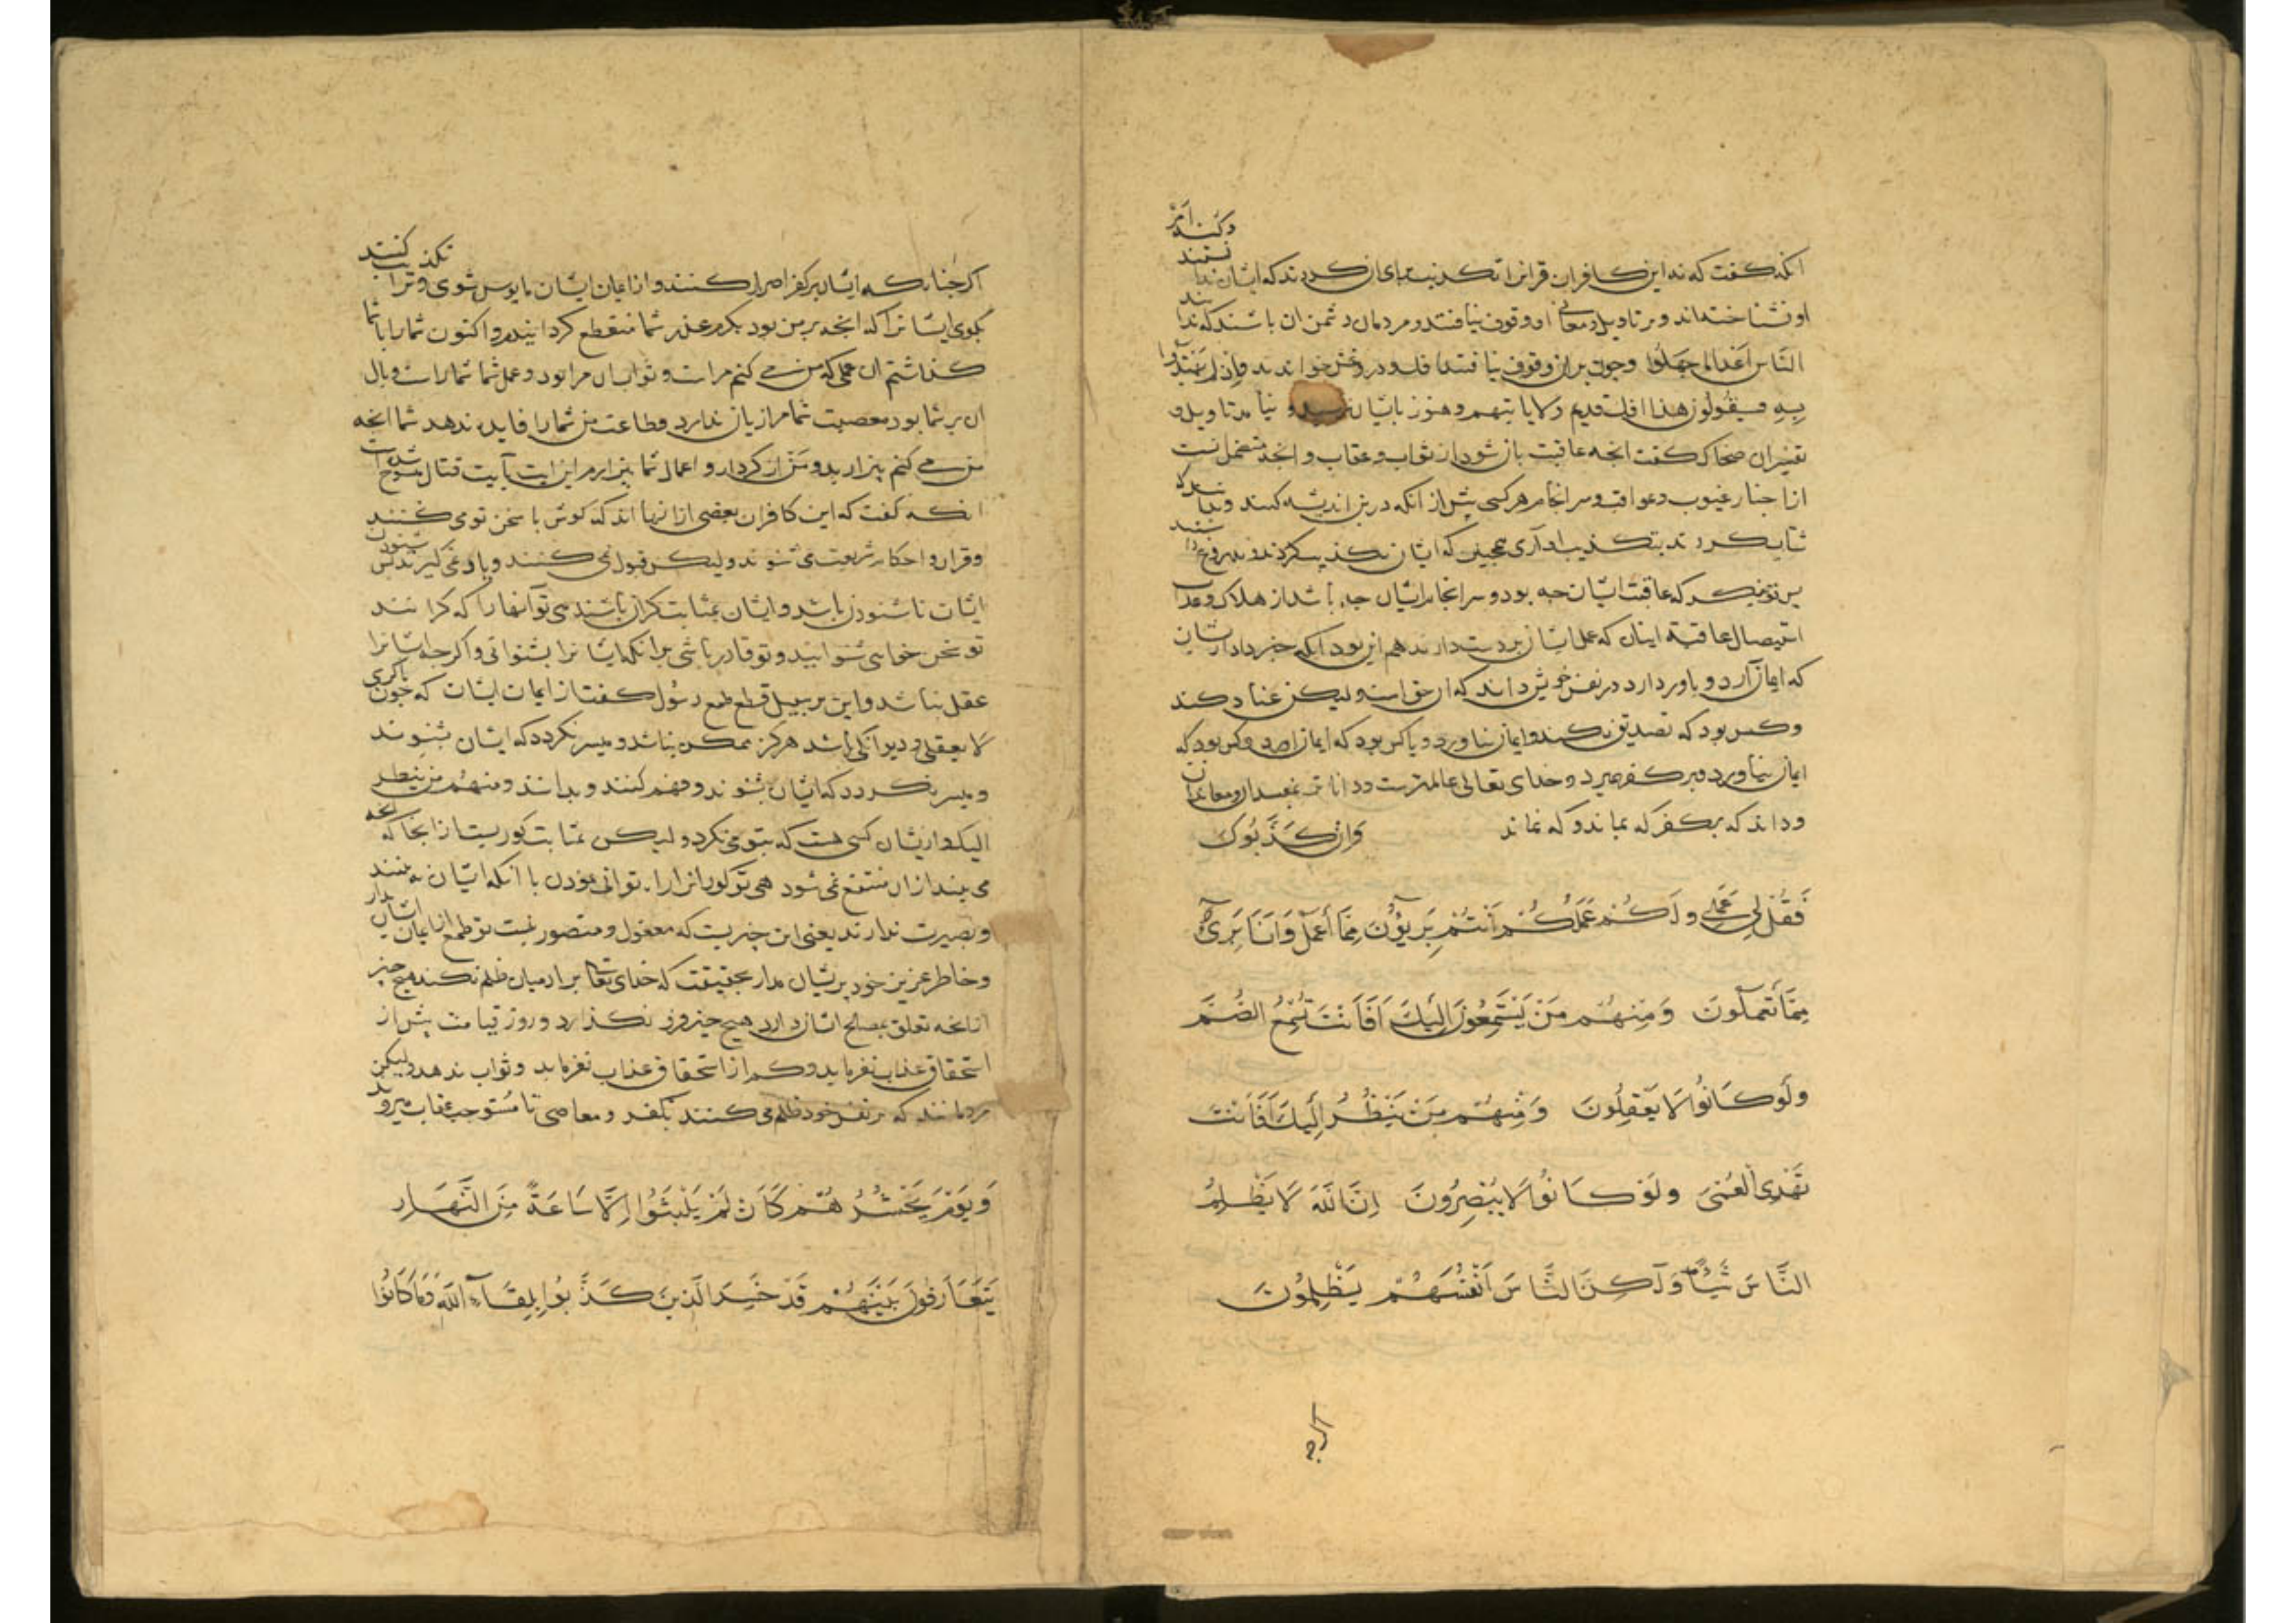 انکه گفت که نه این کافران قرانرا تکذیب کردند که ایشان
او نشناخته‌اند و بر تاویل و معانی او وقوف نیافتند و مردمان دشمن ان باشند که ندانند
النّاس اعدا لما جهلوا وچون بران وقوف نیافتند دروغش خواندند واذ لم یهتدوا
به فسیقولون هذا افک قدیم ولما یاتیهم وهنوز بایشان نرسید و نیامد تاویل و
تفسیر ان ضحاک گفت انچه عاقبت باز شود از ثواب و عقاب و انچه متضمن است
از اخبار غیوب و عواقب و سرانجام هر کسی پیش از انکه درین اندیشه کنند
شتاب کردند بتکذیب او آری همچنین که ایشان تکذیب کردند
پس تو بنگر که عاقبت ایشان چه بود و سرانجام ایشان چه باشد از هلاک و عذاب
استیصال عاقبة اینان که عمل ایشان بر دست دارند هم این بود انکه خبر داد از ایشان
که ایمان آرد و باور دارد در نفس خویش داند که ان حق است ولیکن عناد کند
و کس بود که تصدیق نکند و ایمان نیاورد و یا کس بود که ایمان ارد و کس بود که
ایمان نیاورد و بر کفر میرد و خدای تعالی عالمترست و داناتر بمفسدان و معاندان
و داند که بر کفر که بماند و که نماند وَاِن كَذَّبُوكَ
فَقُل لِي عَمَلِي وَلَكُمْ عَمَلُكُمْ اَنتُمْ بَرِيئُونَ مِمَّا أَعْمَلُ وَاَنَا بَرِيءٌ
مِمَّا تَعْمَلُونَ وَمِنْهُمْ مَنْ يَسْتَمِعُونَ اِلَيْكَ اَفَاَنْتَ تُسْمِعُ الصُّمَّ
وَلَوْ كَانُوا لَا يَعْقِلُونَ وَمِنْهُمْ مَنْ يَنْظُرُ اِلَيْكَ اَفَاَنْتَ
تَهْدِي الْعُمْيَ وَلَوْ كَانُوا لَا يُبْصِرُونَ اِنَّ اللّٰهَ لَا يَظْلِمُ
النَّاسَ شَيْئًا وَلٰكِنَّ النَّاسَ اَنْفُسَهُمْ يَظْلِمُونَ
اکرچه
اکر چنانکه ایشان بر کفر اصرار کنند و از ایمان ایشان مایوس شوی و ترا تکذیب کنند
بکوی ایشانرا که انچه بر من بود بکردم عذر شما منقطع کردانیدم و اکنون شما را با شما
کذاشتم ان عملی که من می کنم مراست و ثواب ان مرا بود و عمل شما شماراست و وبال
ان بر شما بود معصیت شما مرا زیان ندارد و طاعت من شما را فایده ندهد شما انچه
من می کنم بیزار بد و من از کردار و اعمال شما بیزارم این ایت بآیت قتال منسوخ شده است
انکه گفت که این کافران بعضی از انها اند که کوش با سخن تو می کنند
و قران و احکام شریعت می شنوند ولیکن قبول نمی کنند و یاد نمی کیرند پس شنودن
ایشان ناشنودن باشد و ایشان بمثابت کران باشند می توانی انها را که کرانند
تو سخن خواهی شنوانید و تو قادر باشی بر انکه ایشانرا بشنوانی و اکر چه ایشانرا
عقل نباشد و این بر سبیل قطع طمع رسول گفت از ایمان ایشان که چون با کری
لا یعقلی و دیوانکی باشد هرکز ممکن نباشد و میسر نکردد که ایشان بشنوند
و میسر نکردد که ایشان بشنوند و فهم کنند و بدانند ومنهم من ینظر
الیک و از یشان کسی هست که بتو می نکرد ولیکن بمثابت کوریست از انجا که انچه
می بیند از ان منتفع نمی شود هی تو کورانرا راه توانی نمودن با انکه ایشان نه بینند
و بصیرت ندارند یعنی این چیزیست که معقول و متصور نیست تو طمع از ایمان ایشان
و خاطر عزیز خود پریشان مدار بحقیقت که خدای تعالی بر ادمیان ظلم نکند هیچ چیز
از انچه تعلق بمصالح ایشان دارد هیچ چیز فرو نکذارد و روز قیامت بیش از
استحقاق عذاب نفرماید و کم از استحقاق عذاب نفرماید و ثواب ندهد ولیکن
مردمانند که بر نفس خود ظلم می کنند بکفر و معاصی تا مستوجب عقاب میروند
وَيَوْمَ يَحْشُرُهُمْ كَاَنْ لَمْ يَلْبَثُوا اِلَّا سَاعَةً مِنَ النَّهَارِ
يَتَعَارَفُونَ بَيْنَهُمْ قَدْ خَسِرَ الَّذِينَ كَذَّبُوا بِلِقَاءِ اللّٰهِ وَمَا كَانُوا